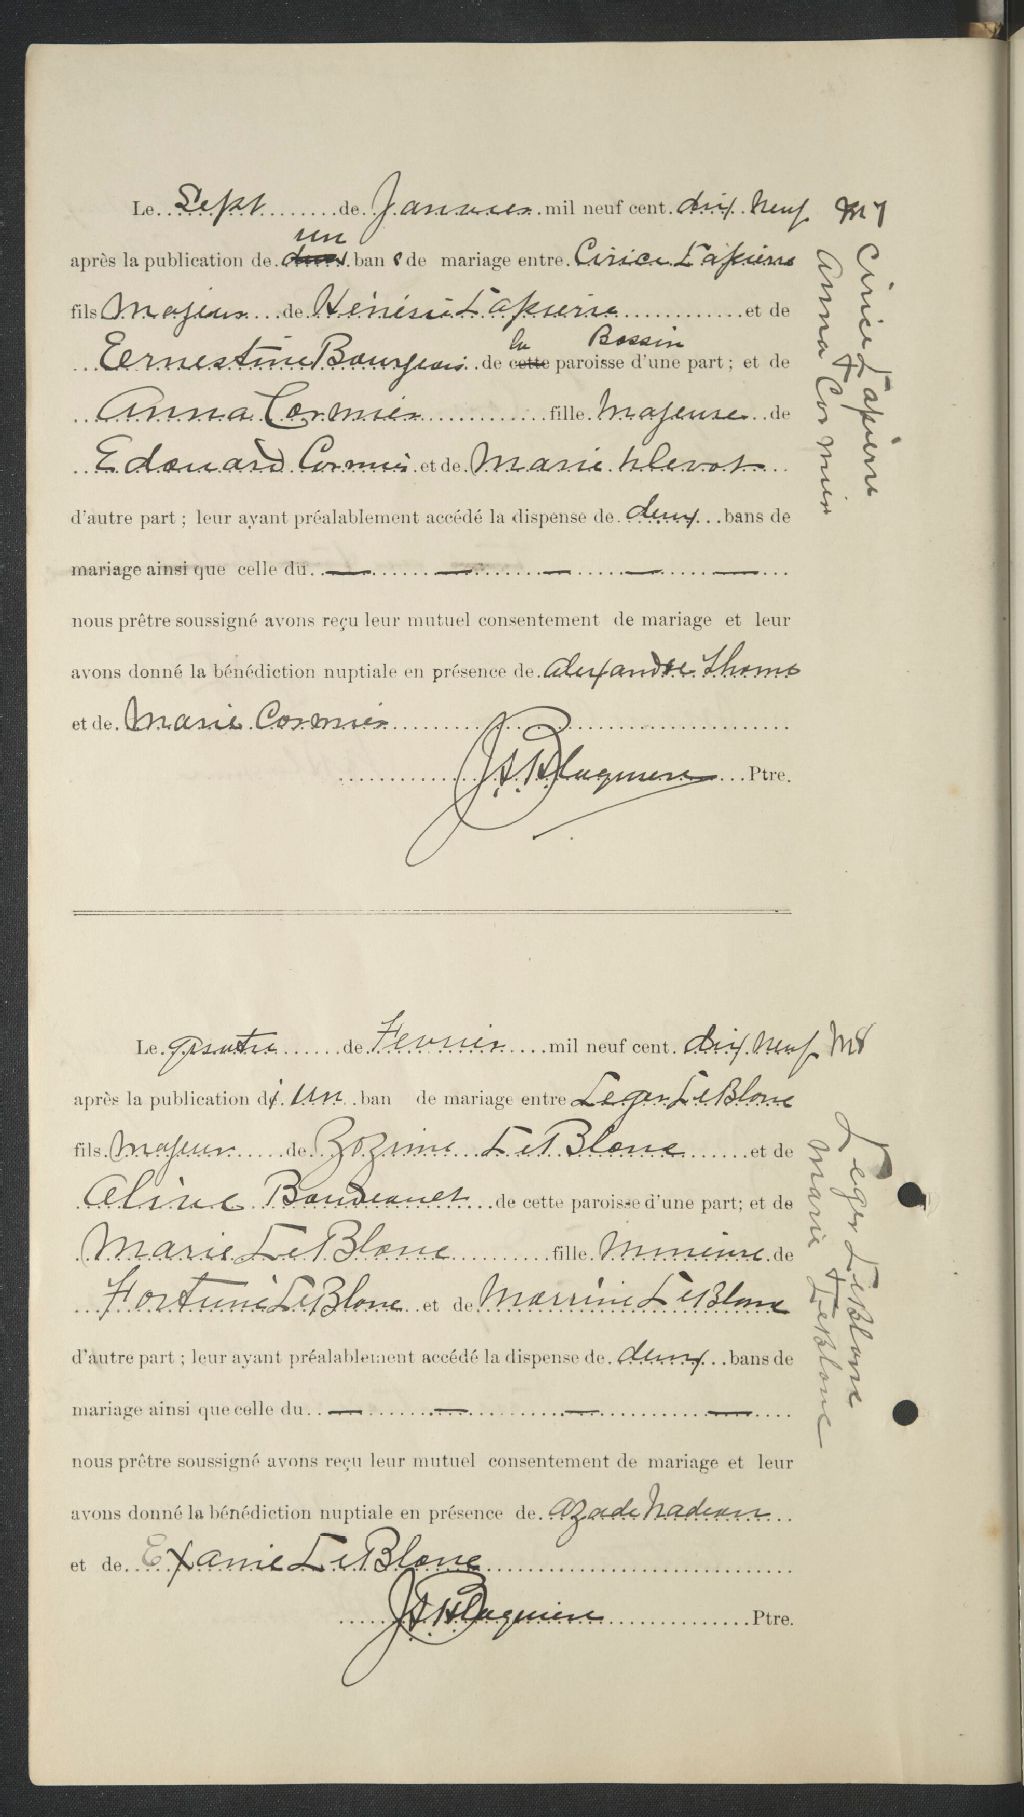 Le Sept de Janvier mil neuf cent dix neuf M 7
un
après la publication de deux ban s de mariage entre Cirice Lapierre
fils Majeur de Hénésie Lapierre et de
la Bassin
Ernestine Bourgeois de cette paroisse d'une part ; et de
Anna Cormier fille Majeure de
Edouard Cormier et de Marie
d'autre part ; leur ayant préalablement accédé la dispense de deux bans de
mariage ainsi que celle du — — — — —
nous prêtre soussigné avons reçu leur mutuel consentement de mariage et leur
avons donné la bénédiction nuptiale en présence de Alexandre Thorne
et de Marie Cormier
Ptre.
Cirice Lapierre
+
Anna Cormier
Le quatre de Fevrier mil neuf cent dix neuf M8
après la publication de un ban de mariage entre Leger LeBlanc
fils Majeur de Zozime LeBlanc et de
Aline Boudeauet de cette paroisse d'une part; et de
Marie LeBlanc fille Mineure de
Fortuné LeBlanc et de LeBlanc
d'autre part ; leur ayant préalablement accédé la dispense de deux bans de
mariage ainsi que celle du — — — —
nous prêtre soussigné avons reçu leur mutuel consentement de mariage et leur
avons donné la bénédiction nuptiale en présence de Azade Nadeau
et de Exanie LeBlanc
Ptre.
Leger LeBlanc
+
Marie LeBlanc